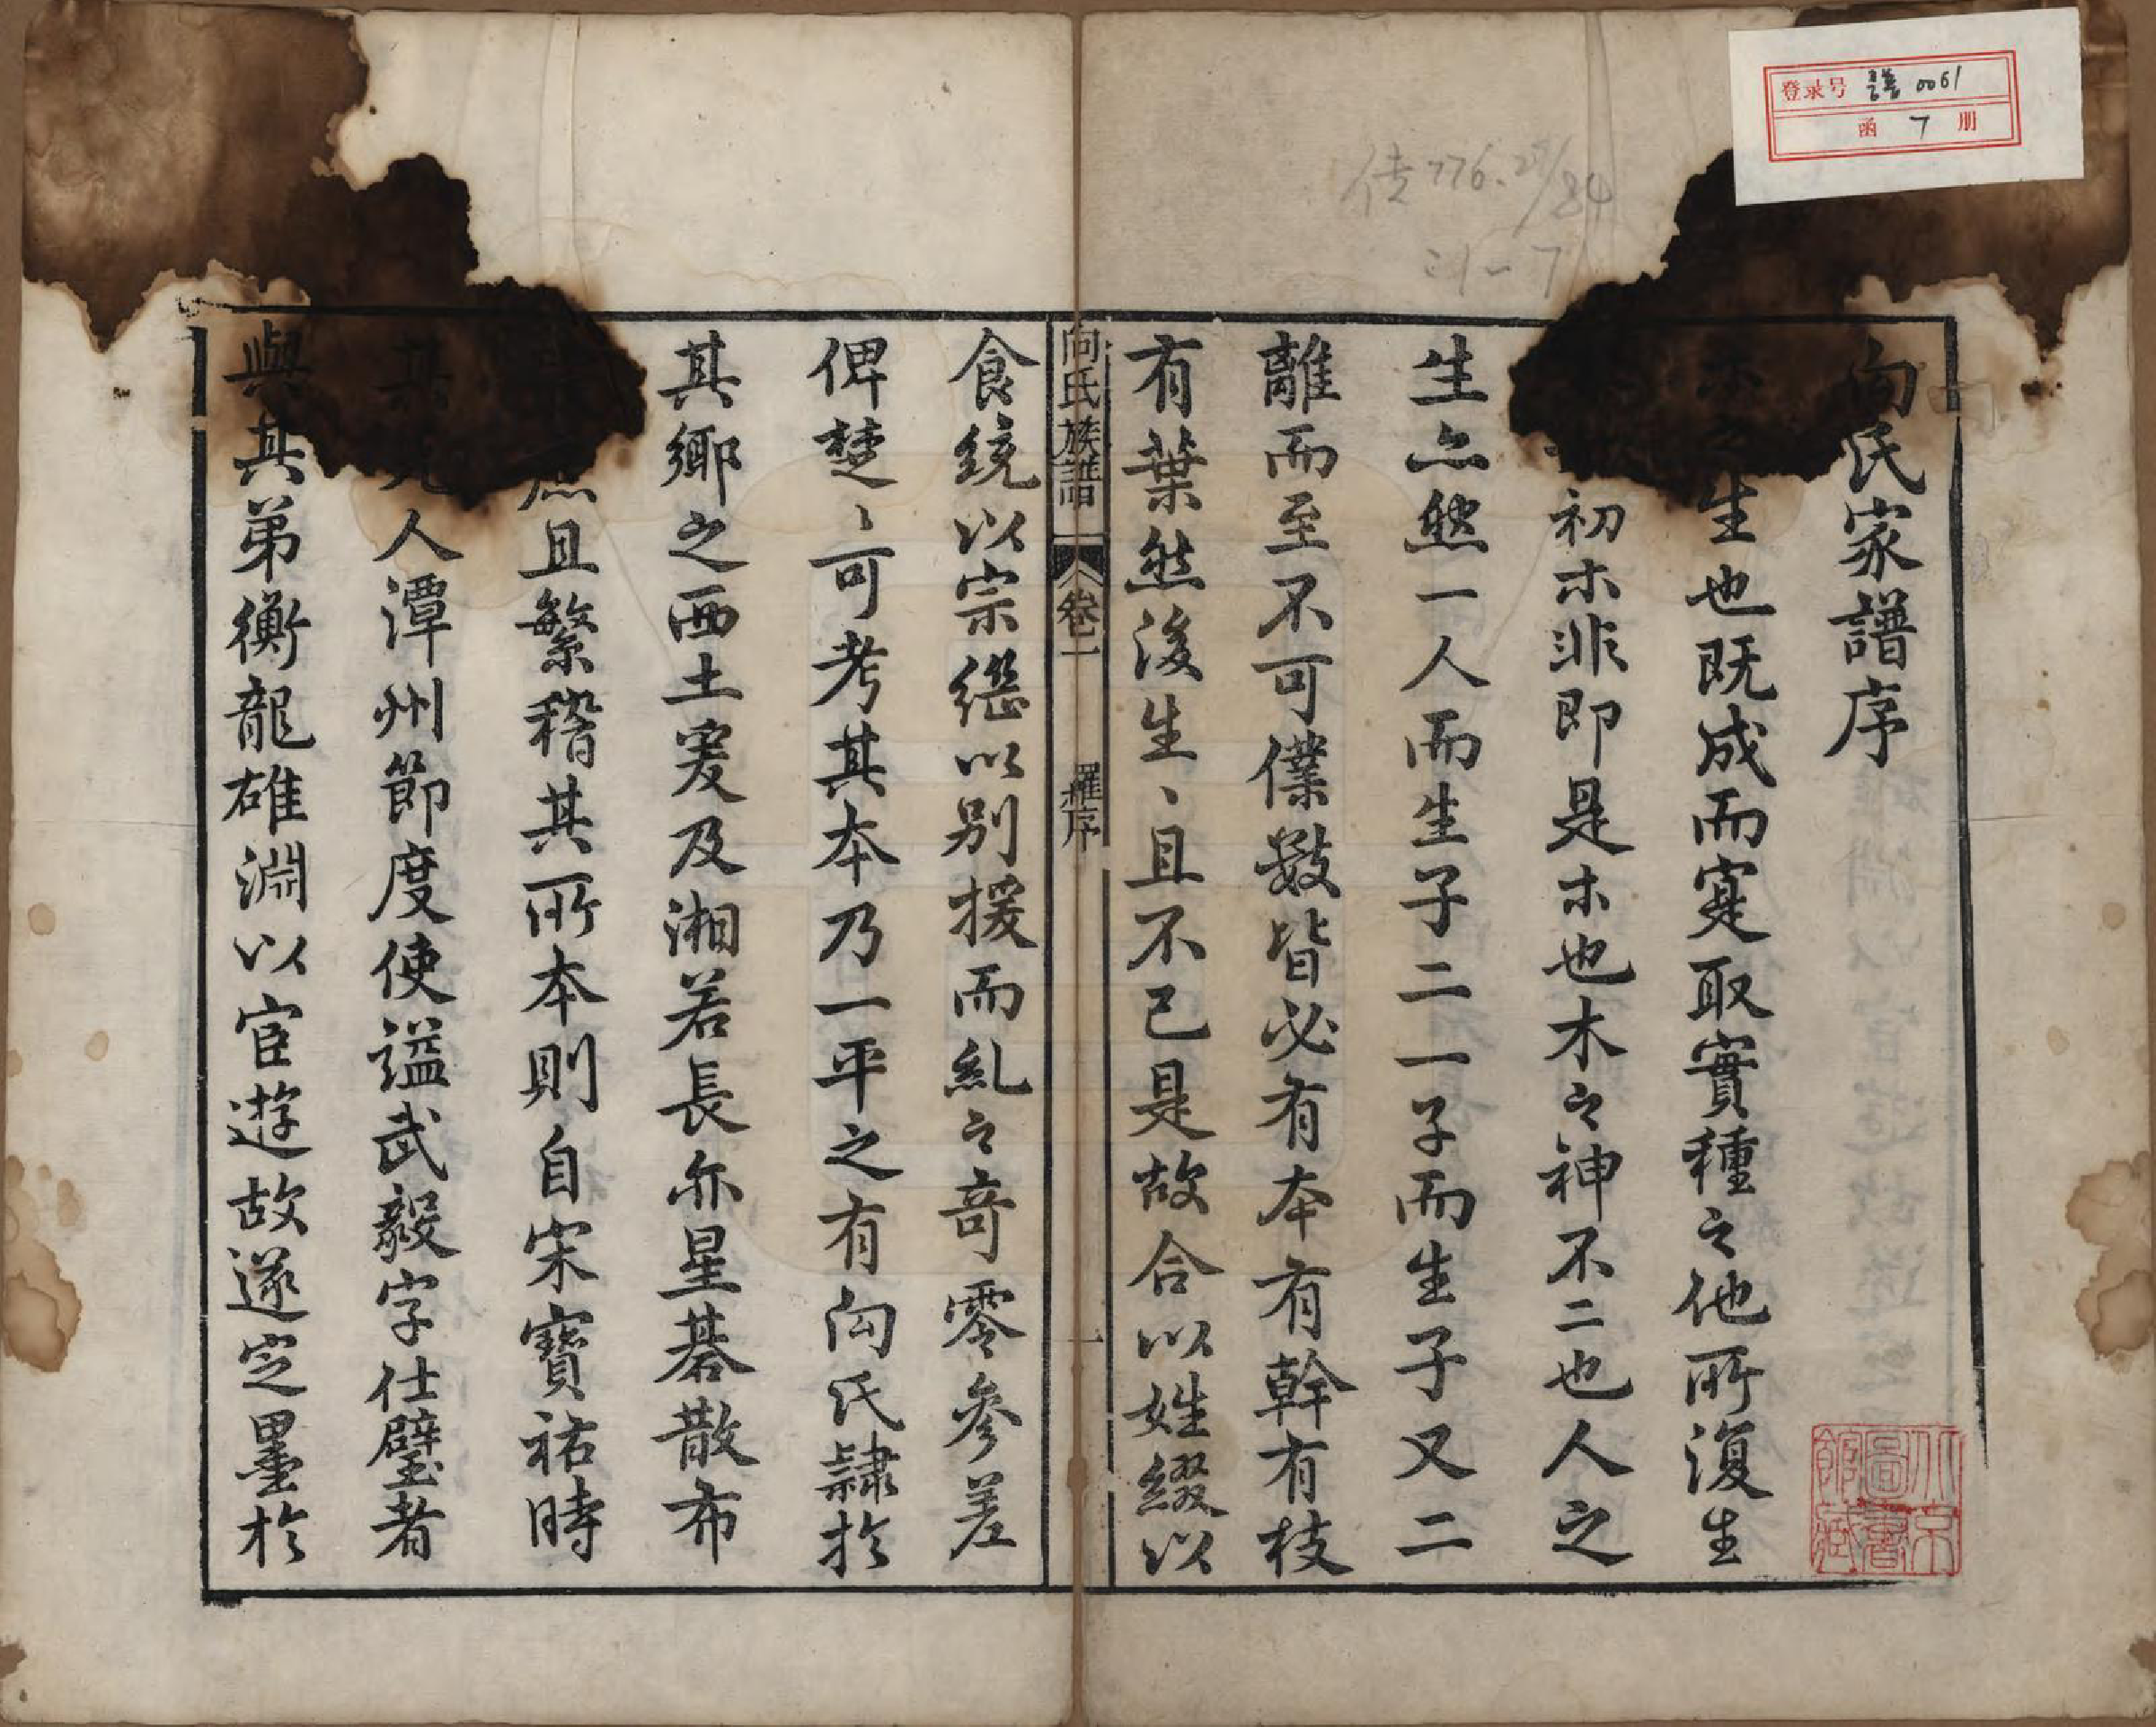 向氏家譜序
木之生也既成而寔取實種之他所復生
初木非即是木也木之神不二也人之
生亦然一人而生子二一子而生子又二
離而至不可僕數皆必有本有幹有枝
有葉然後生、且不已是故合以姓綴以
食統以宗繼以別援而糺之奇零參差
俾楚、可考其本乃一平之有向氏隷於
其鄉之西土爰及湘若長亦星碁散布
庶且繁稽其所本則自宋寶祐時
其先人潭州節度使謚武毅字仕璧者
與其弟衡龍雄淵以宦遊故遂定墨於
向氏族譜 卷一 羅序 一
登录号 善 0061
函 7 册
776.29/84
:1-7
北京圖書館藏